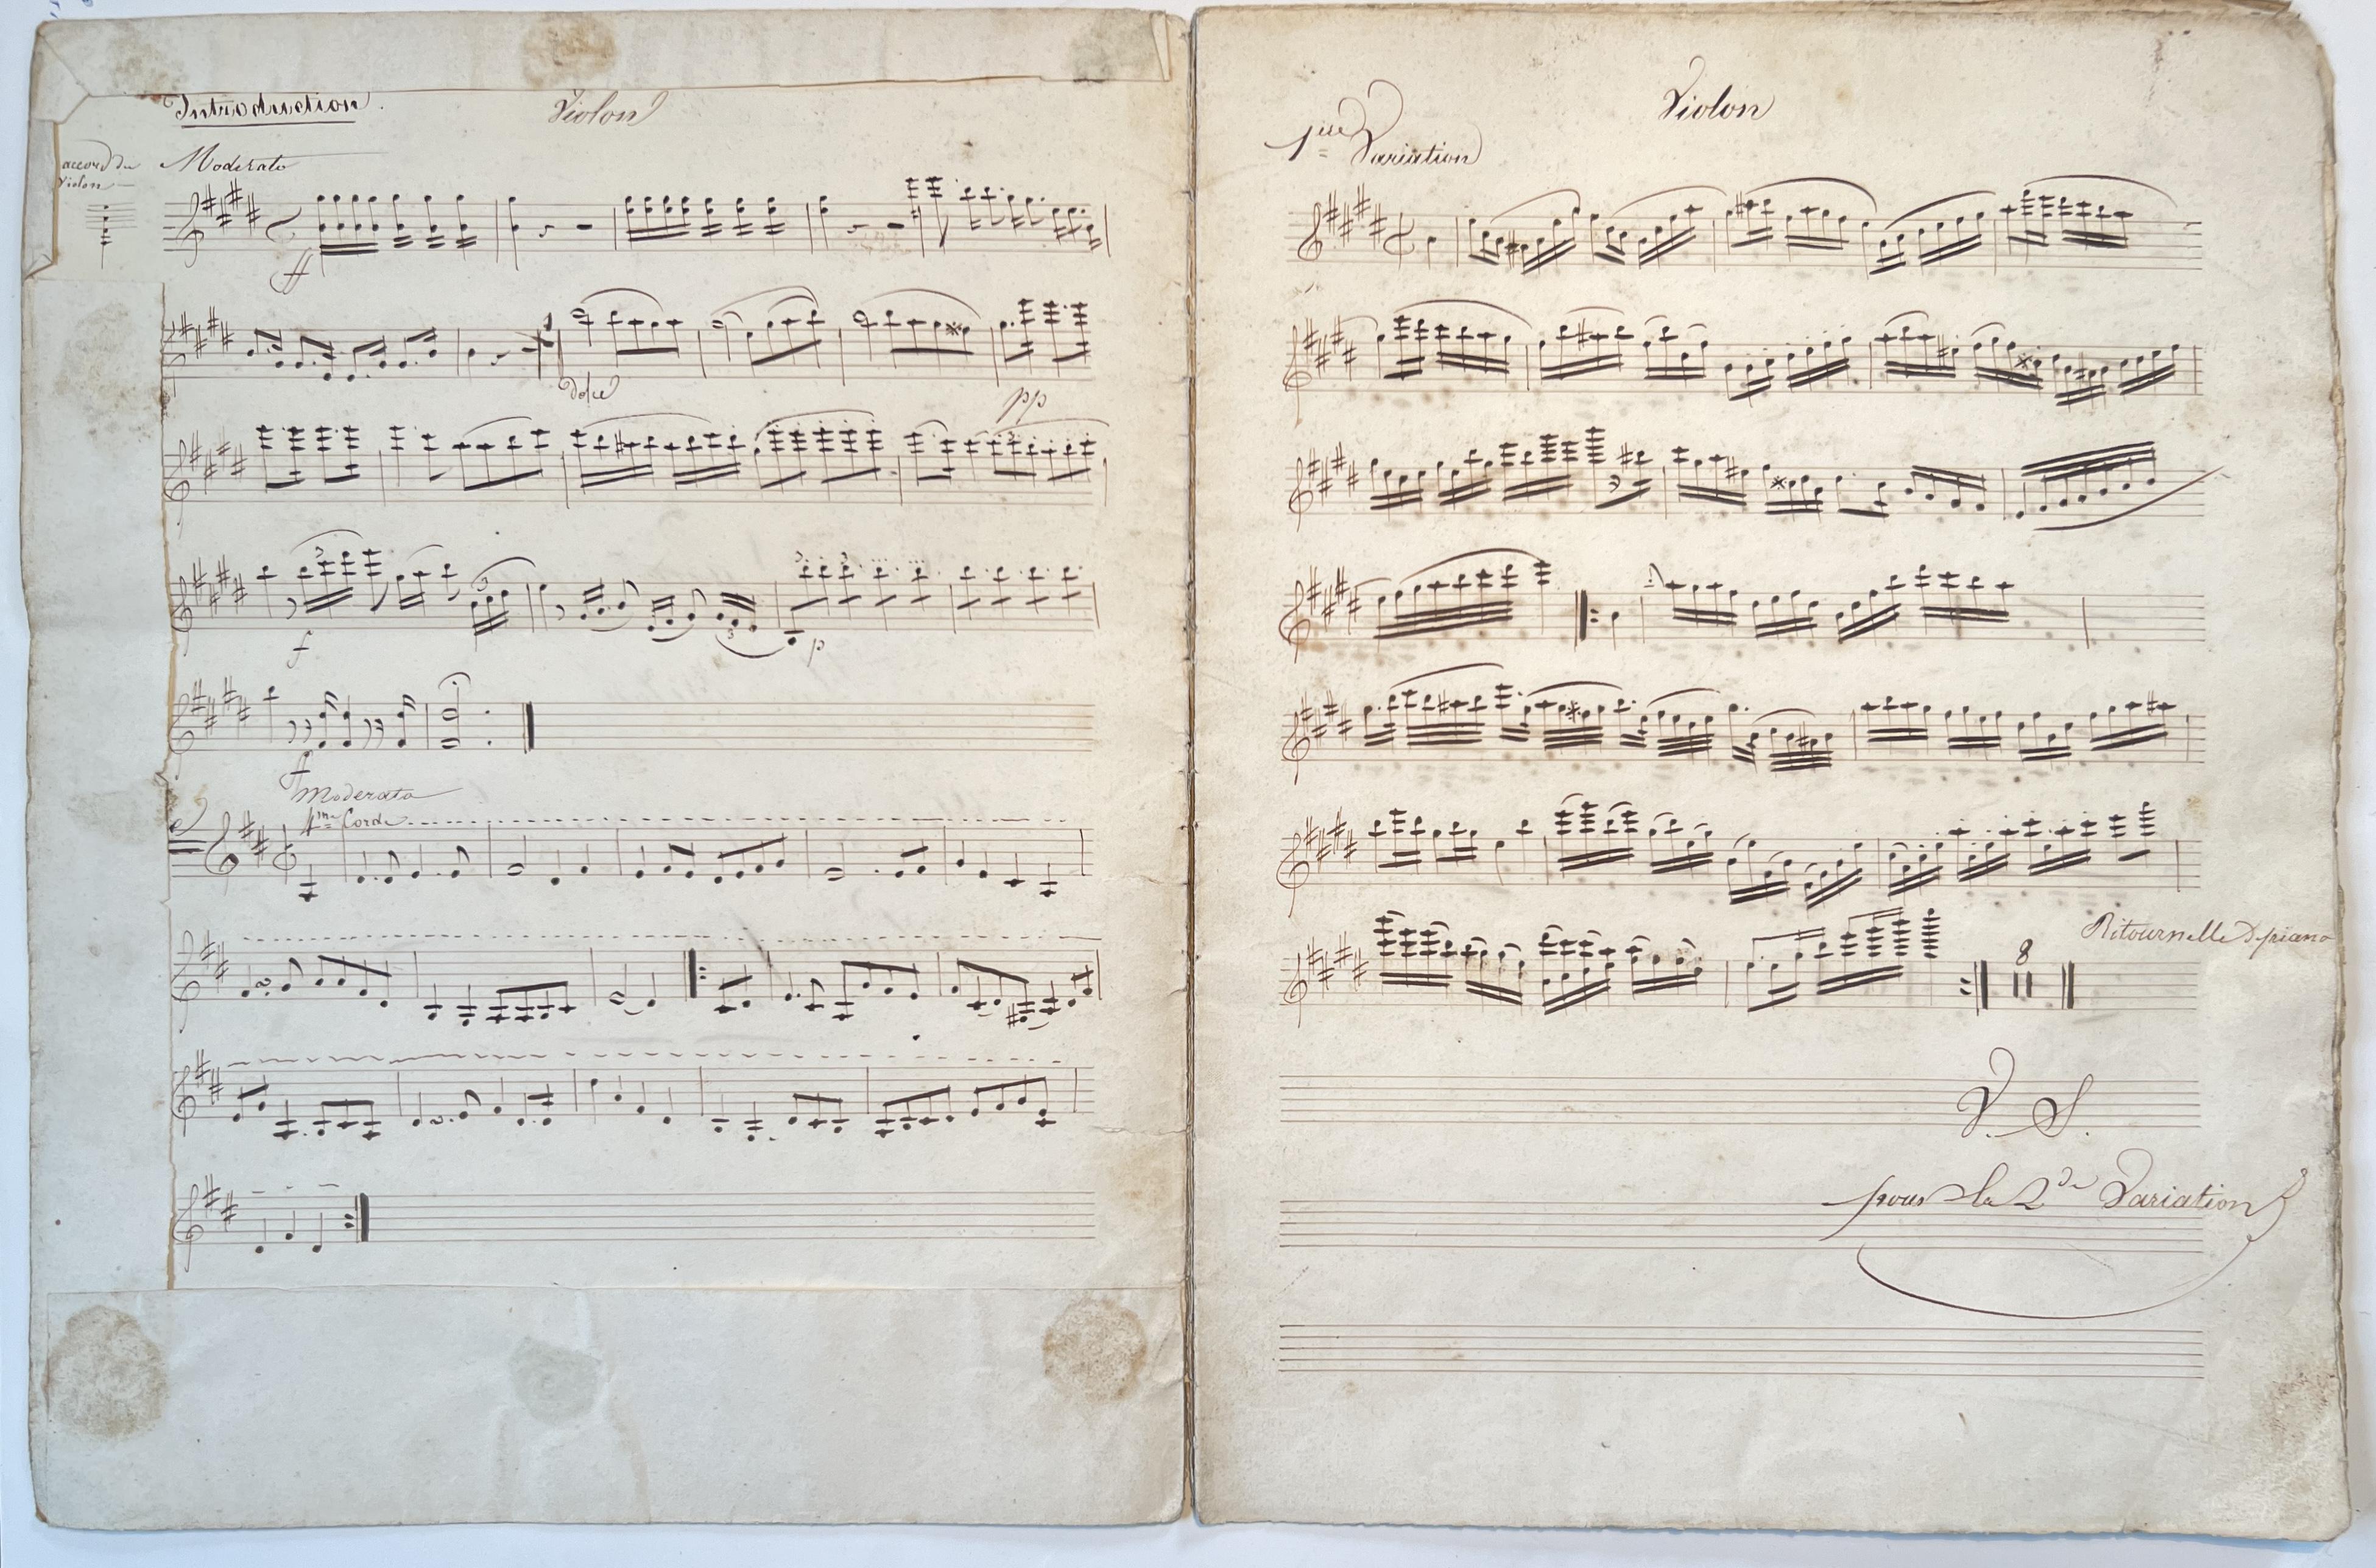 Introduction. Violon
accord du
violon
Moderato
ff
dolce
pp
3
3
3
3
3
f
p
ff
Moderato
4me Corde
Violon
1ere Variation
8
Ritournelle D piano
V. S.
pour la 2de Variation